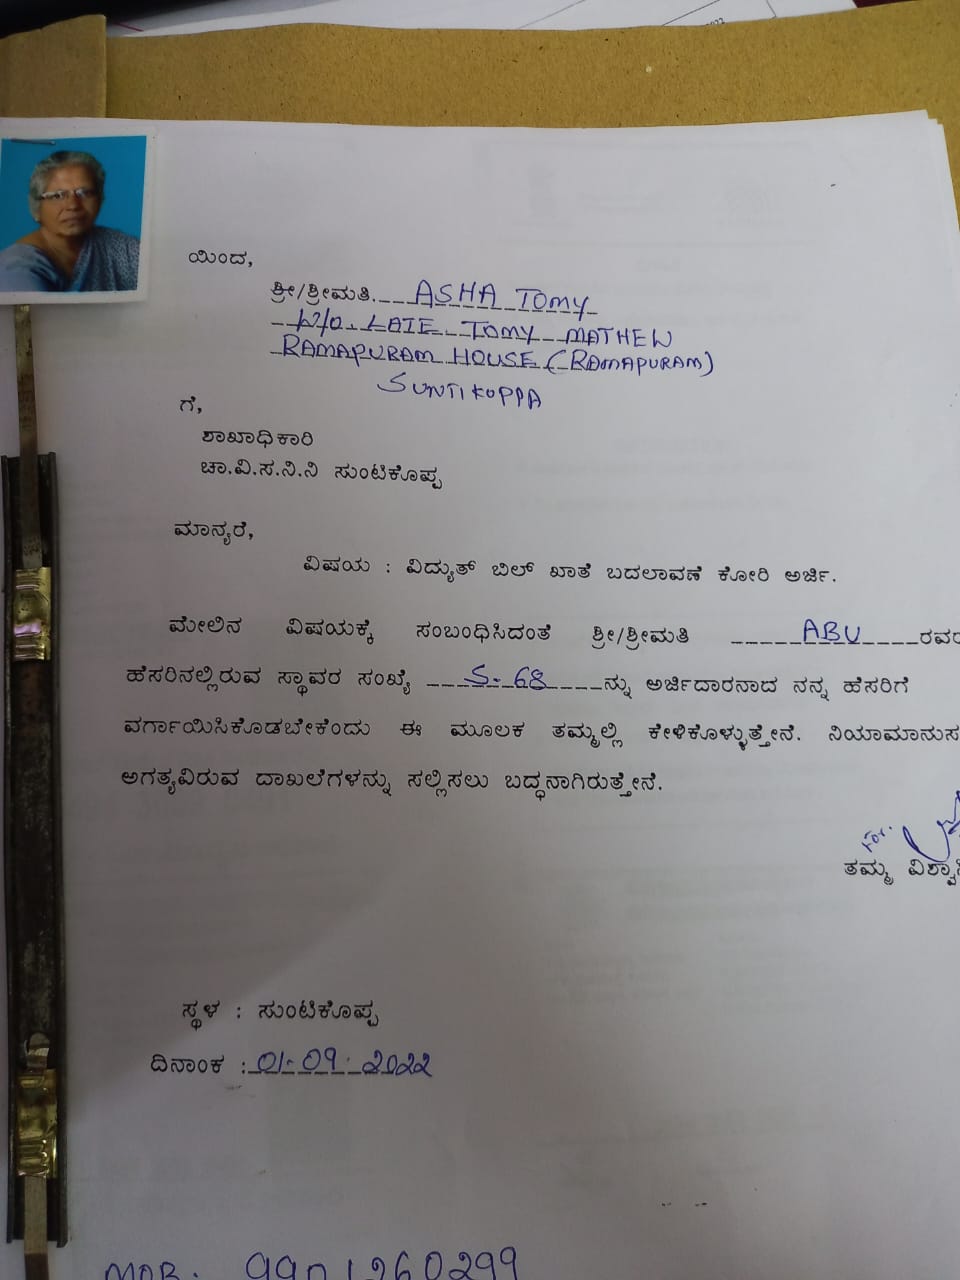 ಯಿಂದ,
ಶ್ರೀ/ಶ್ರೀಮತಿ. ASHA TOMY
W/O. LATE TOMY MATHEW
RAMAPURAM HOUSE (RAMAPURAM)
SUNTIKOPPA
ಗೆ,
ಶಾಖಾಧಿಕಾರಿ
ಚಾ.ವಿ.ಸ.ನಿ.ನಿ ಸುಂಟಿಕೊಪ್ಪ
ಮಾನ್ಯರೆ,
ವಿಷಯ : ವಿದ್ಯುತ್ ಬಿಲ್ ಖಾತೆ ಬದಲಾವಣೆ ಕೋರಿ ಅರ್ಜಿ.
ಮೇಲಿನ ವಿಷಯಕ್ಕೆ ಸಂಬಂಧಿಸಿದಂತೆ ಶ್ರೀ/ಶ್ರೀಮತಿ ABU ರವರ
ಹೆಸರಿನಲ್ಲಿರುವ ಸ್ಥಾವರ ಸಂಖ್ಯೆ S-68 ನ್ನು ಅರ್ಜಿದಾರನಾದ ನನ್ನ ಹೆಸರಿಗೆ
ವರ್ಗಾಯಿಸಿಕೊಡಬೇಕೆಂದು ಈ ಮೂಲಕ ತಮ್ಮಲ್ಲಿ ಕೇಳಿಕೊಳ್ಳುತ್ತೇನೆ. ನಿಯಾಮಾನುಸ
ಅಗತ್ಯವಿರುವ ದಾಖಲೆಗಳನ್ನು ಸಲ್ಲಿಸಲು ಬದ್ಧನಾಗಿರುತ್ತೇನೆ.
For.
ತಮ್ಮ ವಿಶ್ವಾಸಿ
ಸ್ಥಳ : ಸುಂಟಿಕೊಪ್ಪ
ದಿನಾಂಕ : 01-09-2022
MOB: 9901260299